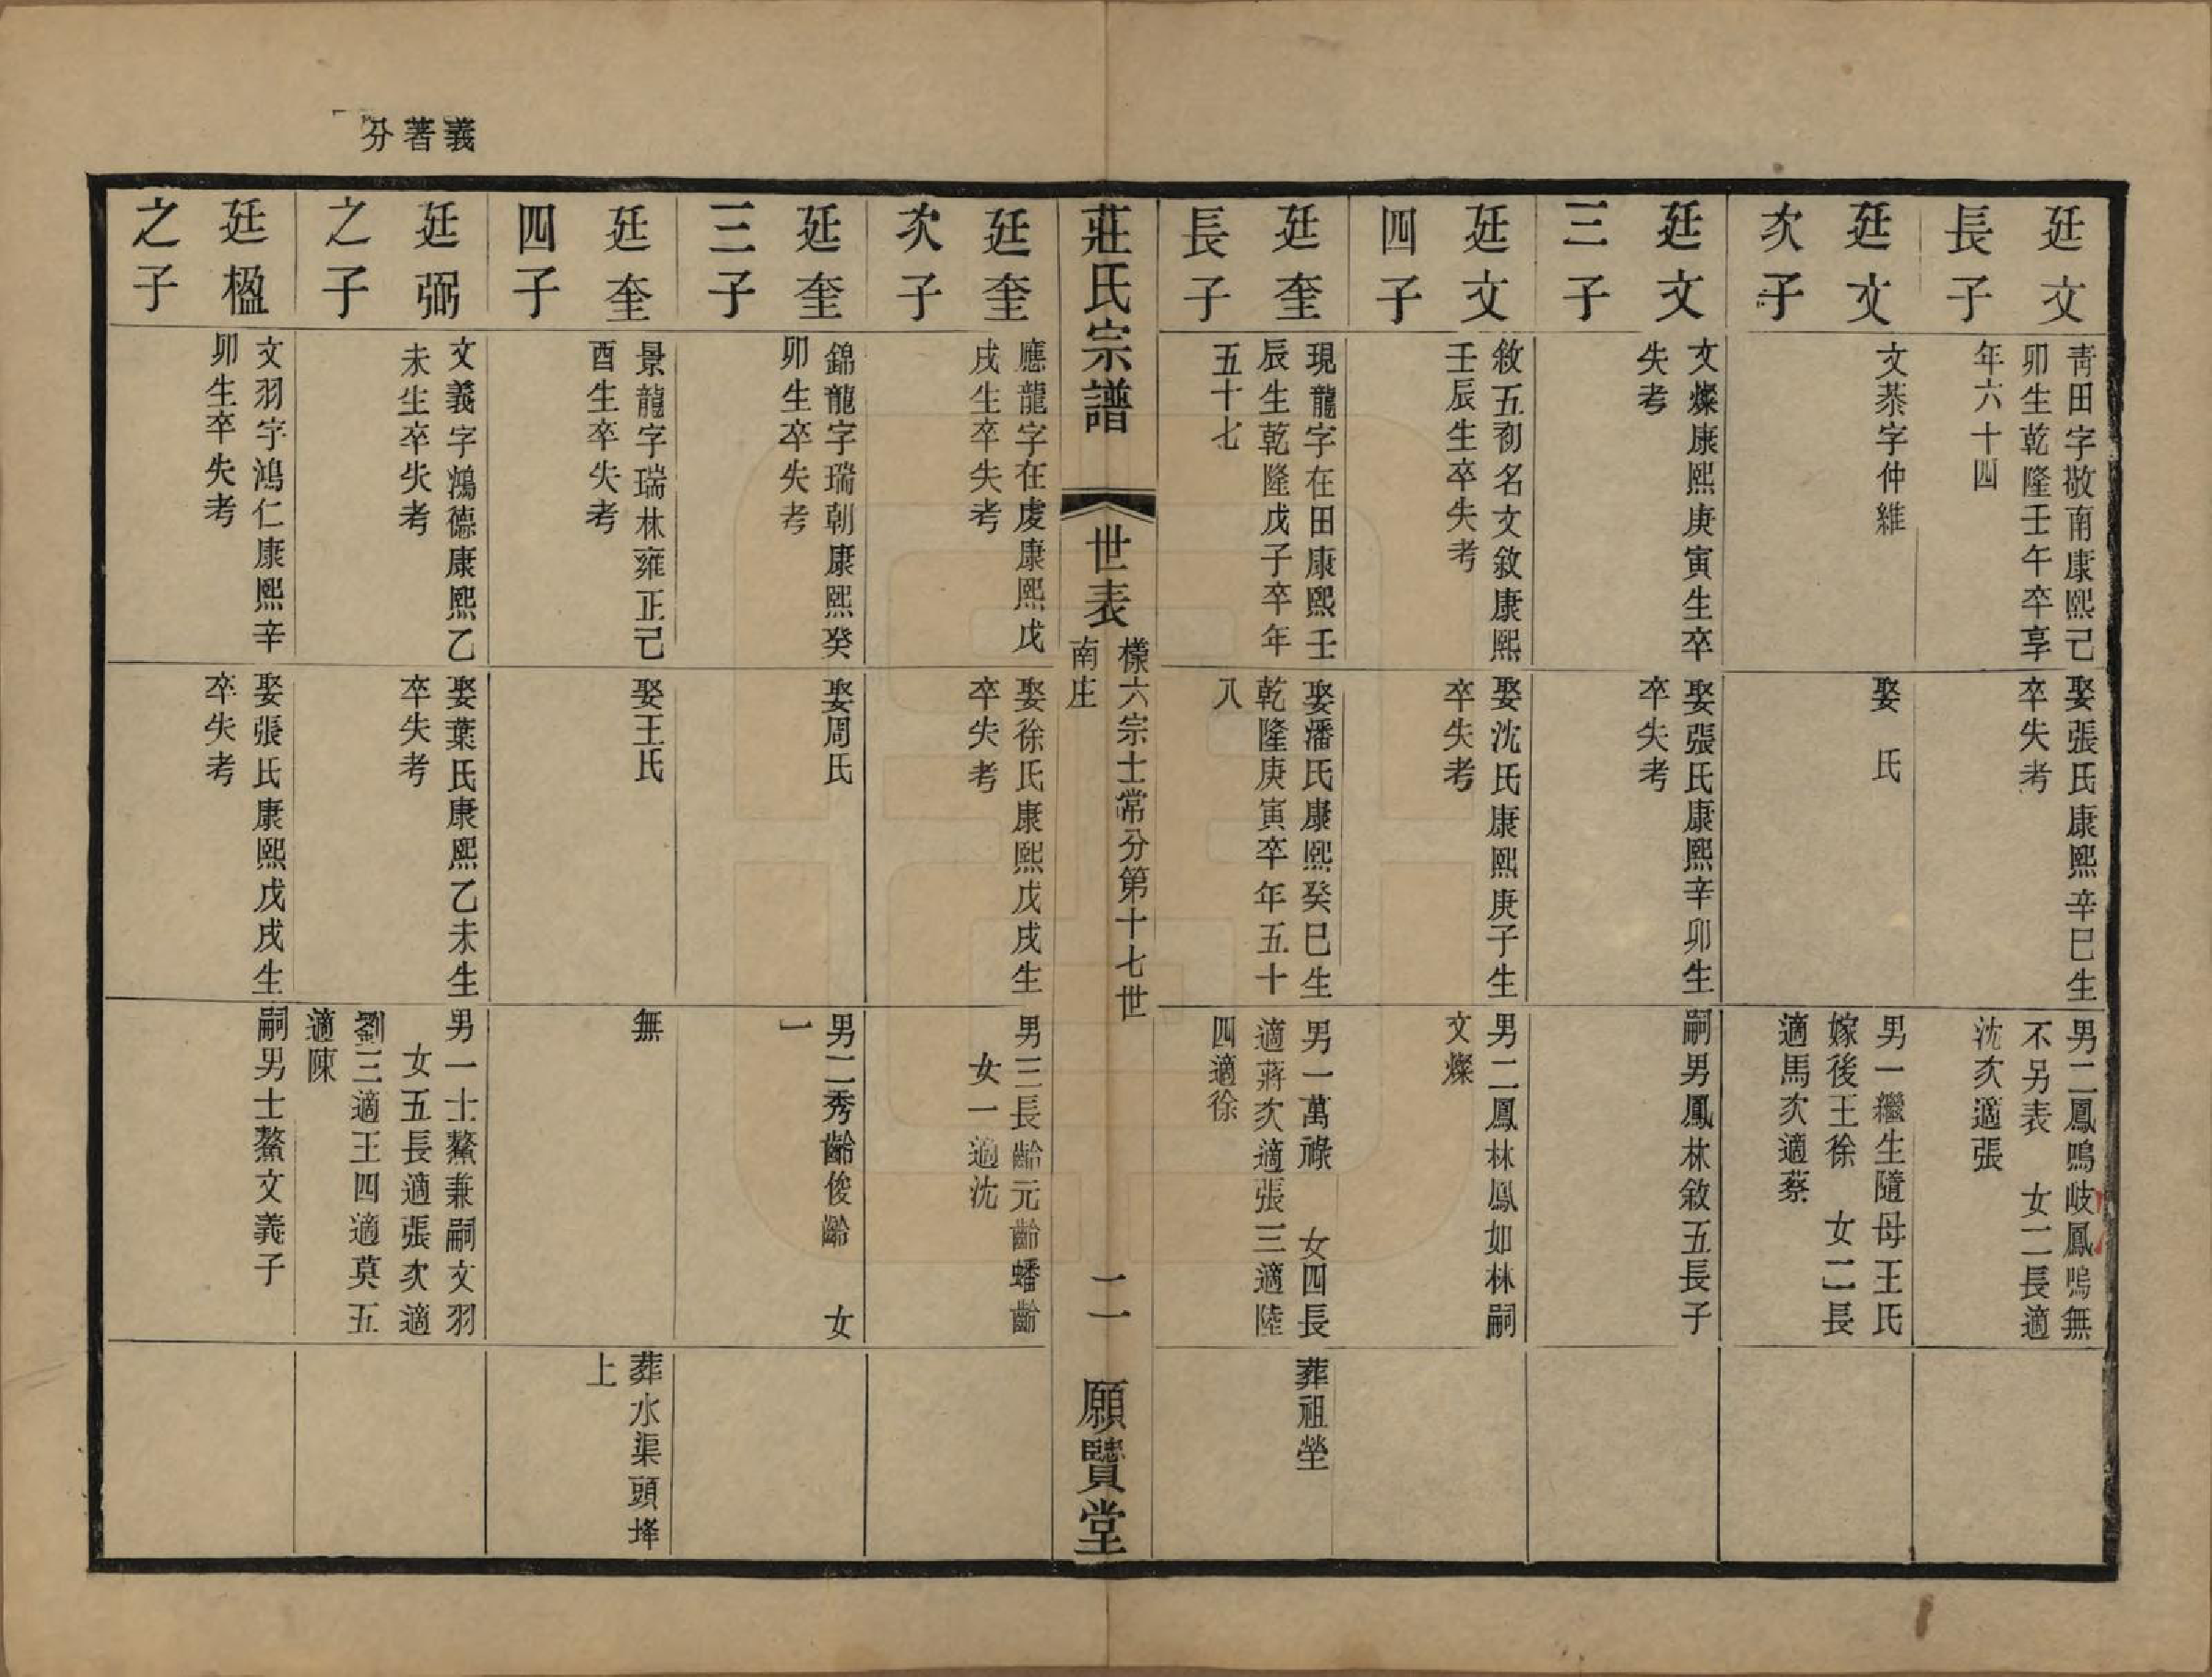 廷文
長子
青田字敬南康熙己
卯生乾隆壬午卒享
年六十四
娶張氏康熙辛巳生
卒失考
男二鳳鳴岐鳳鳴無
不另表　女二長適
沈次適張
廷文
次子
文恭字仲維
娶　氏
男一繼生隨母王氏
嫁後王徐　女二長
適馬次適蔡
廷文
三子
文燦康熙庚寅生卒
失考
娶張氏康熙辛卯生
卒失考
嗣男鳳林敘五長子
廷文
四子
敘五初名文敘康熙
壬辰生卒失考
娶沈氏康熙庚子生
卒失考
男二鳳林鳳如林嗣
文燦
廷奎
長子
現龍字在田康熙壬
辰生乾隆戊子卒年
五十七
娶潘氏康熙癸巳生
乾隆庚寅卒年五十
八
男一萬祿　女四長
適蔣次適張三適陸
四適徐
葬祖塋
莊氏宗譜
世表
樣六宗士常分第十七世
南庄
二一
願賢堂
廷奎
次子
應龍字在虔康熙戊
戌生卒失考
娶徐氏康熙戊戌生
卒失考
男三長齡元齡蟠齡
女一適沈
廷奎
三子
錦龍字瑞朝康熙癸
卯生卒失考
娶周氏
男二秀齡俊齡　女
一
廷奎
四子
景龍字瑞林雍正己
酉生卒失考
娶王氏
無
葬水渠頭垾
上
義著分
廷弼
之子
文義字鴻德康熙乙
未生卒失考
娶葉氏康熙乙未生
卒失考
男一士鰲兼嗣文羽
女五長適張次適
劉三適王四適莫五
適陳
廷楹
之子
文羽字鴻仁康熙辛
卯生卒失考
娶張氏康熙戊戌生
卒失考
嗣男士鰲文義子